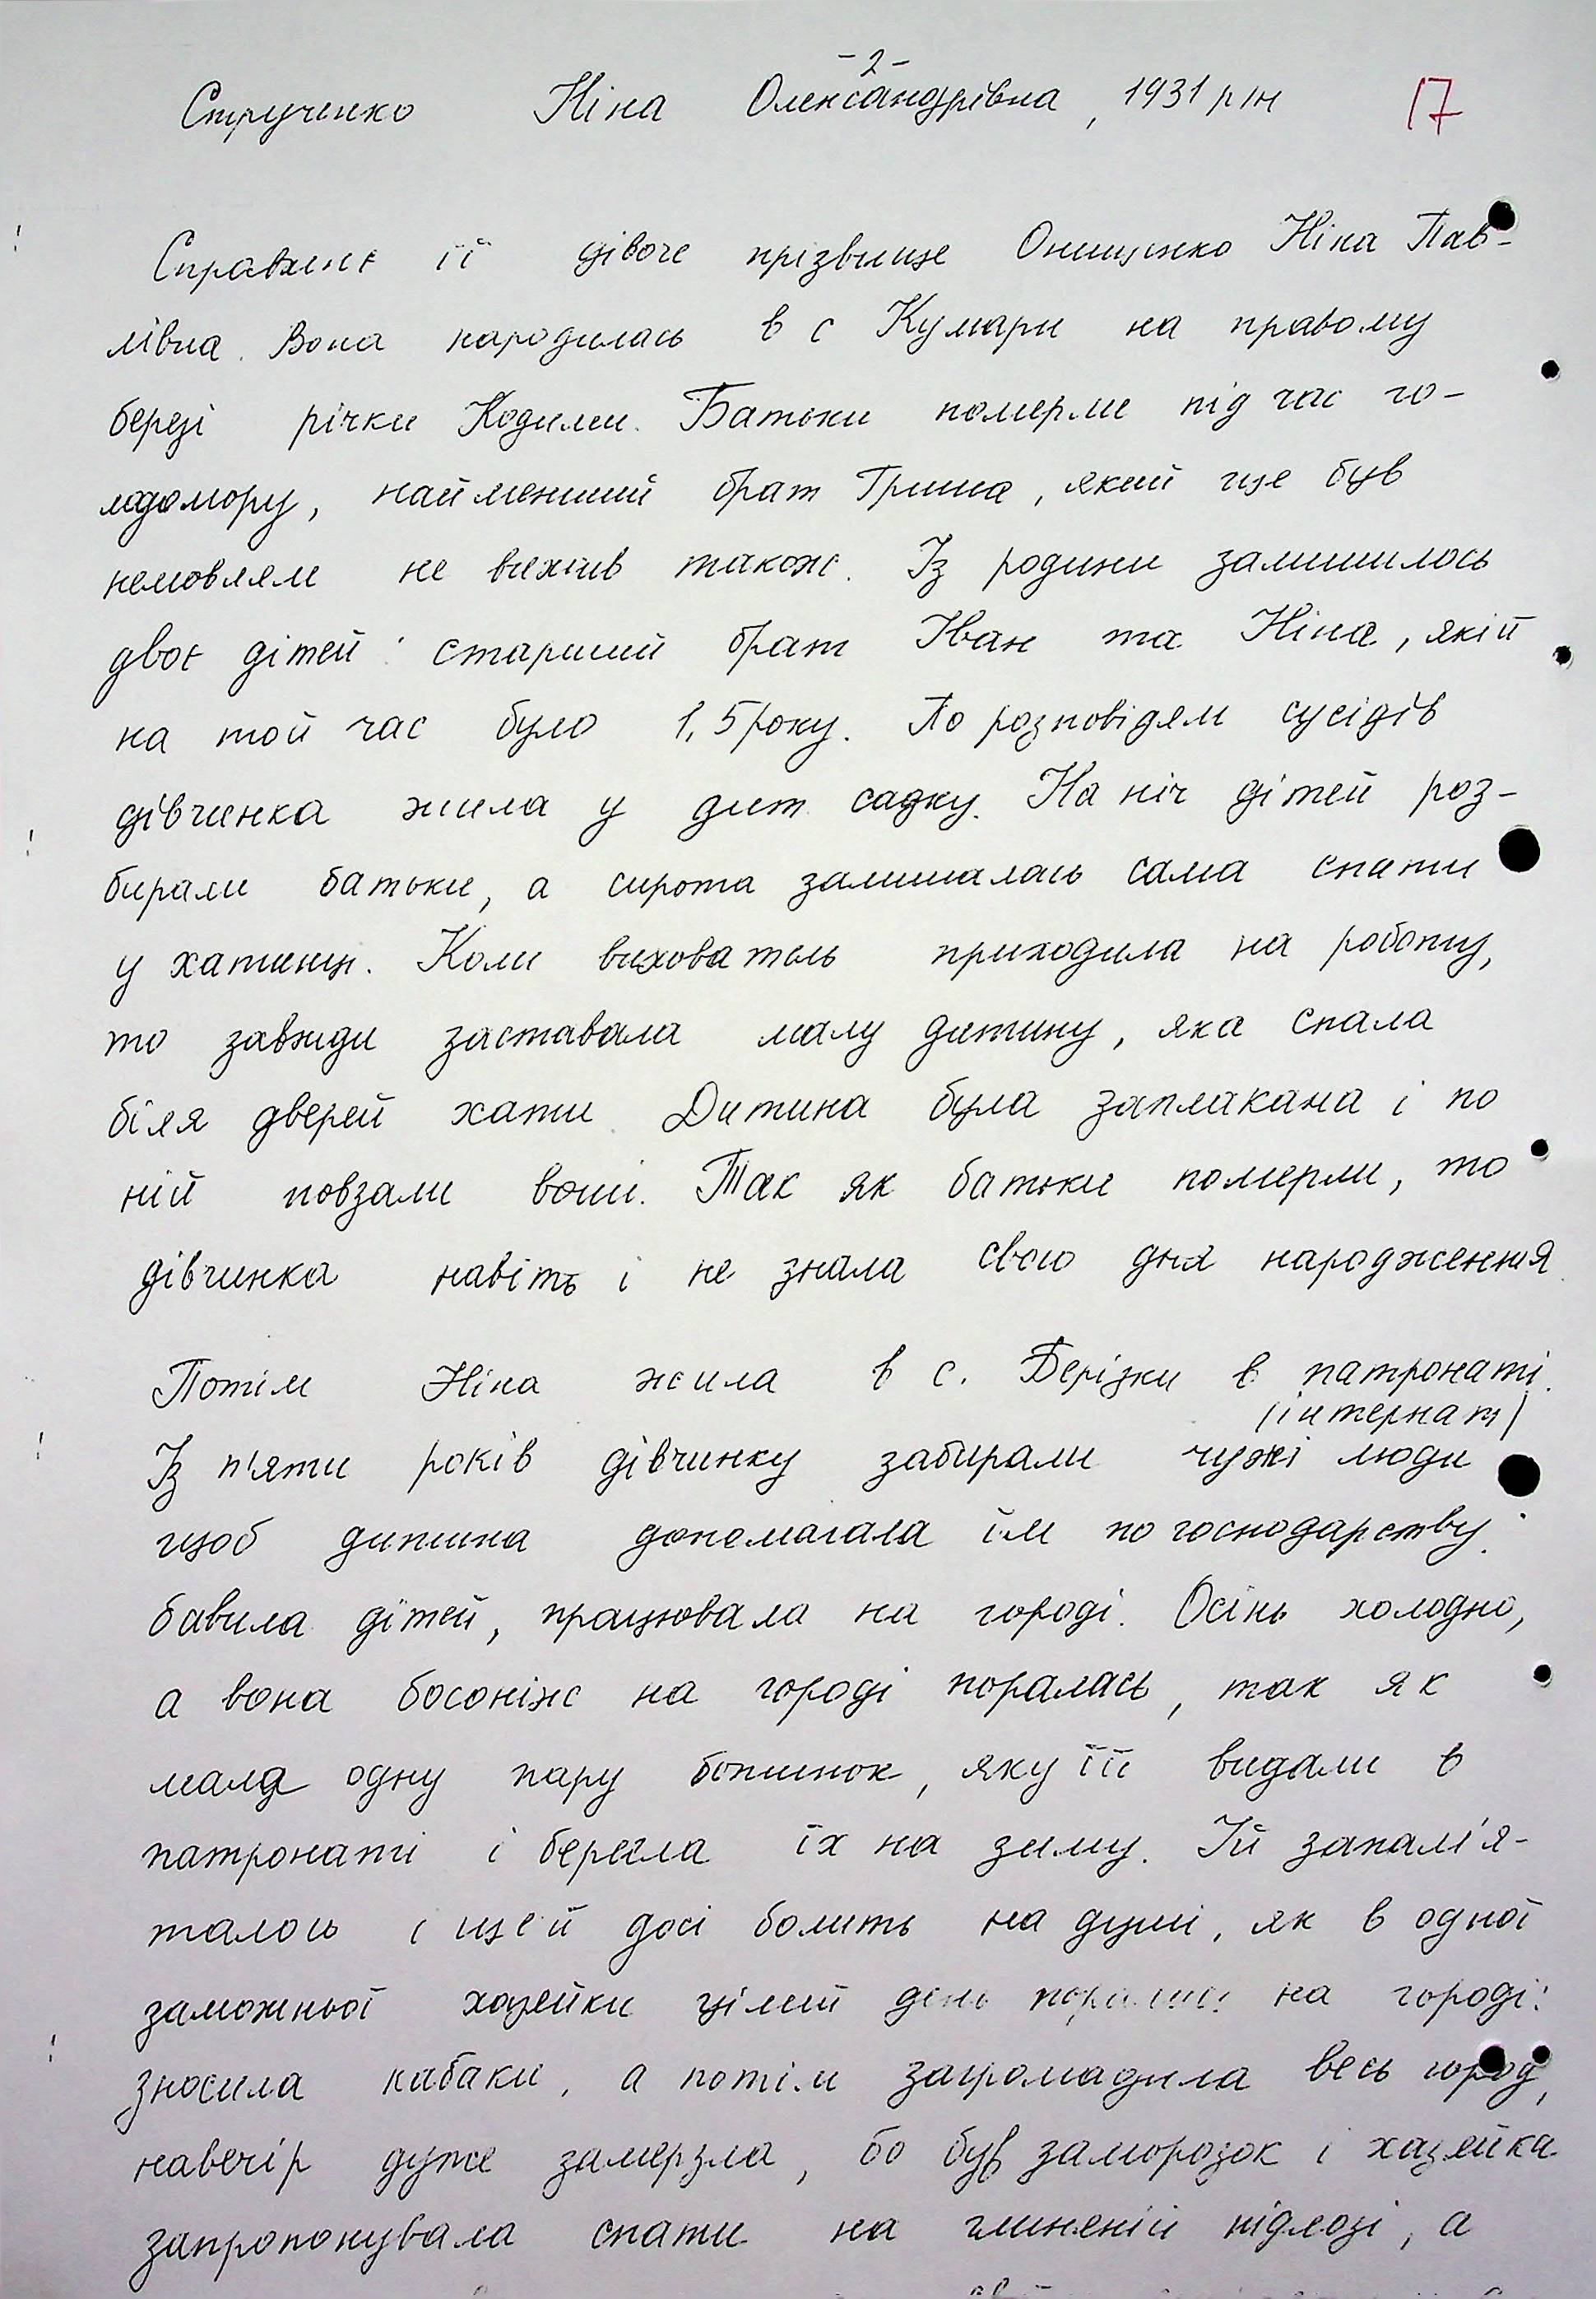 -2-
Струченко Ніна Олександрівна, 1931 рік 17
Справжнє її дівоче прізвище Онищенко Ніна Пав-
лівна. Вона народилась в с Кумари на правому
березі річки Кодими. Батьки померли під час го-
лодомору, найменший брат Гриша, який ще був
немовлям не вижив також. Із родини залишилось
двоє дітей: старший брат Іван та Ніна, якій
на той час було 1,5 року. По розповідям сусідів
дівчинка жила у дит. садку. На ніч дітей роз-
бирали батьки, а сирота залишалась сама спати
у хатинці. Коли вихователь приходила на роботу,
то завжди заставала малу дитину, яка спала
біля дверей хати. Дитина була заплакана і по
ній повзали воші. Так як батьки померли, то
дівчинка навіть і не знала свого дня народження.
Потім Ніна жила в с. Берізки в патронаті.
/інтернат/
Із п'яти років дівчинку забирали чужі люди
щоб дитина допомагала їм по господарству:
бавила дітей, працювала на городі. Осінь холодно,
а вона босоніж на городі поралась, так як
мала одну пару ботинок, яку її видали в
патронаті і берегла їх на зиму. Їй запам'я-
талось і ще й досі болить на душі, як в одної
заможньої хазяйки цілий день на городі:
зносила кабаки, а потім загромадила весь город,
навечір дуже замерзла, бо був заморозок і хазяйка
запропонувала спати на глиняній підлозі, а